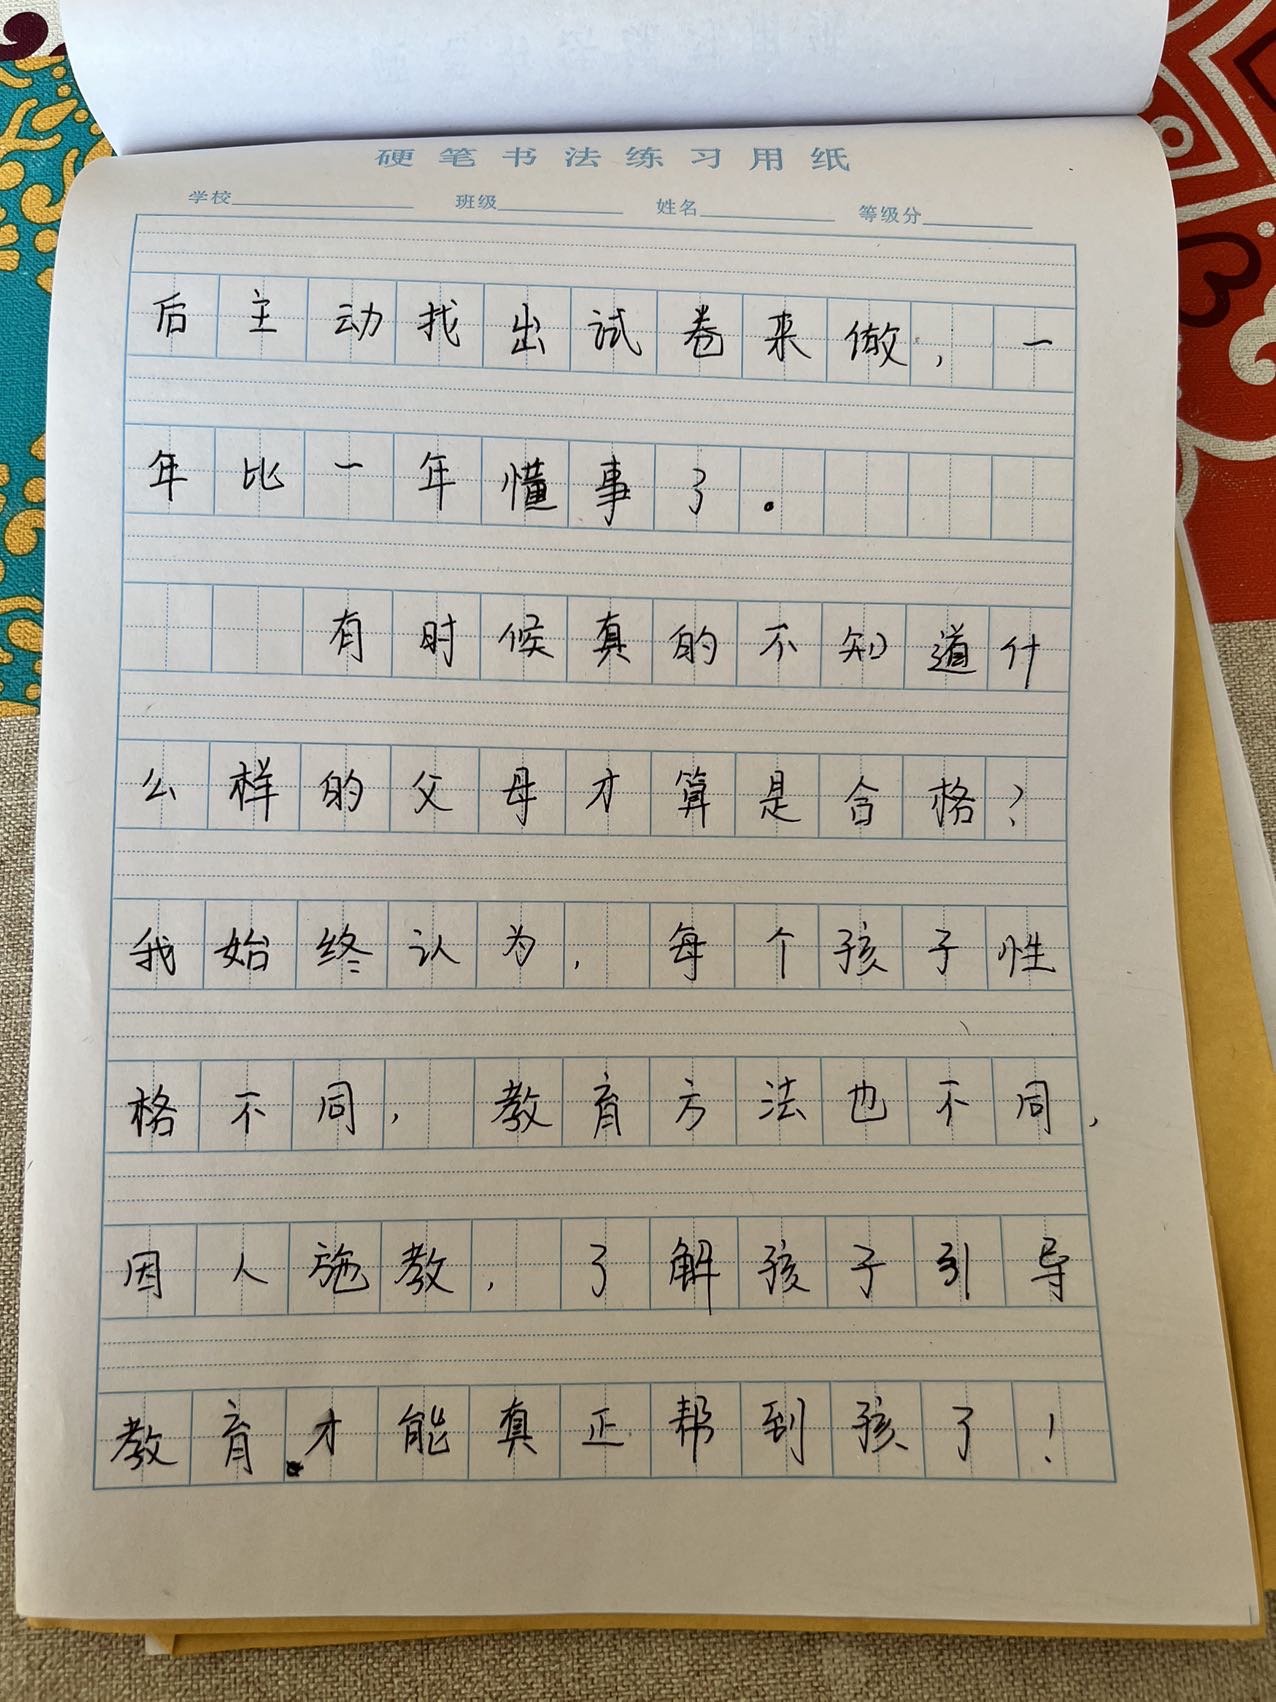 硬笔书法练习用纸
学校 班级 姓名 等级分
后主动找出试卷来做，一
年比一年懂事了。
有时候真的不知道什
么样的父母才算是合格？
我始终认为，每个孩子性
格不同，教育方法也不同，
因人施教，了解孩子引导
教育才能真正帮到孩了！